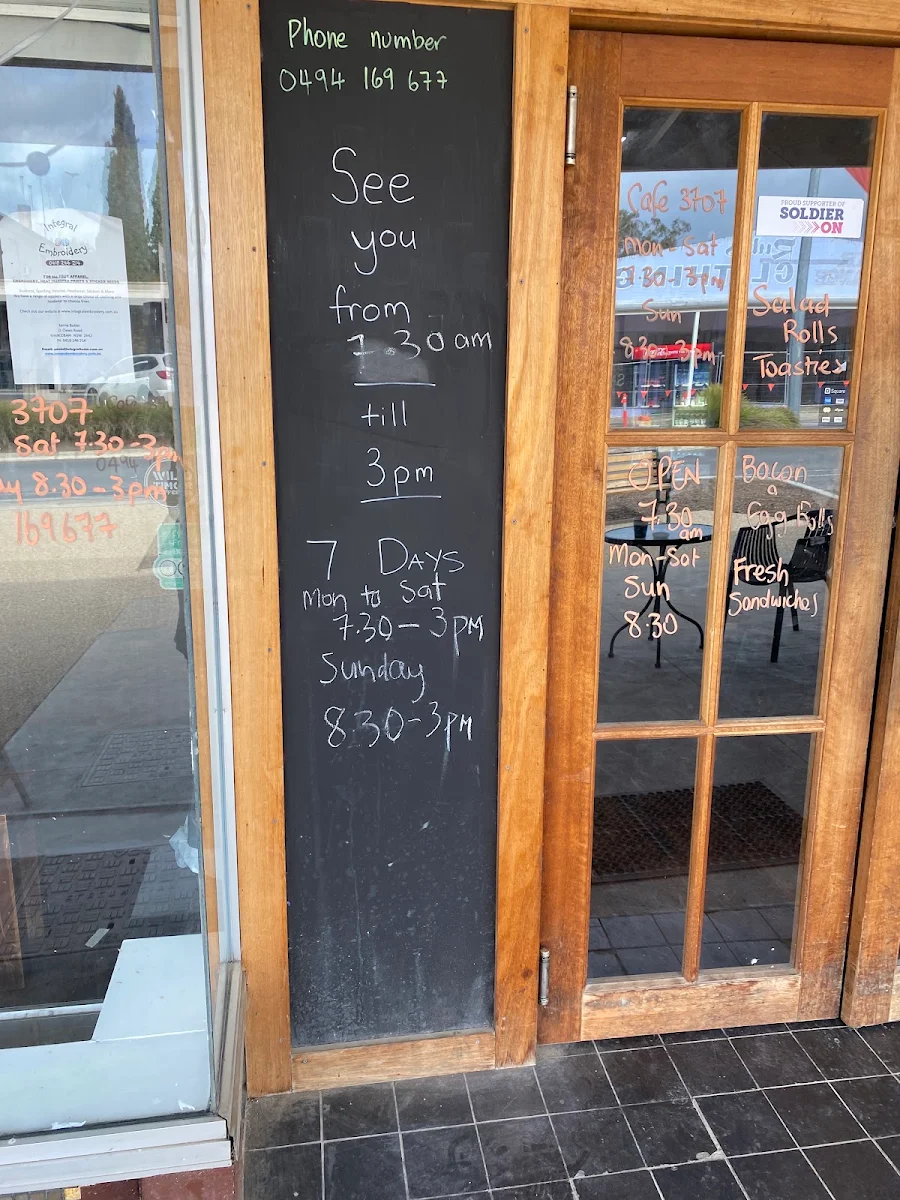 Phone number
0494 169 677
See
you
from
7.30 am
till
3pm
7 DAYS
Mon to Sat
7.30 - 3PM
Sunday
8.30 - 3pm
Integral
Embroidery
3707
Sat 7.30 - 3pm
8.30 - 3pm
0494
169677
Cafe 3707
mon - Sat
7.30 - 3pm
Sun
8.30 - 3pm
PROUD SUPPORTER OF
SOLDIER
ON
Salad
Rolls
Toasties
Square
OPEN
7.30
am
Mon - Sat
Sun
8.30
Bacon
n
Egg Rolls
Fresh
Sandwiches